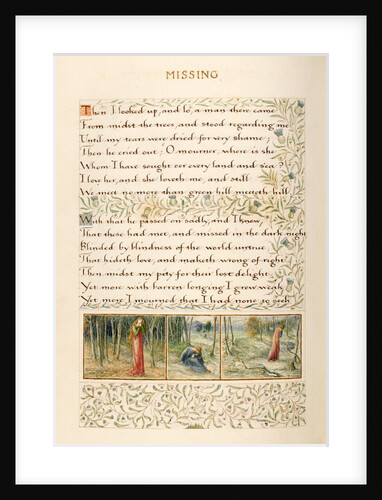 MISSING
Then I looked up, and lo, a man there came
From midst the trees, and stood regarding me
Until my tears were dried for very shame;
Then he cried out: O mourner, where is she
Whom I have sought o'er every land and sea?
I love her, and she loveth me, and still
We meet no more than green hill meeteth hill.
With that he passed on sadly, and I knew,
That these had met, and missed in the dark night
Blinded by blindness of the world untrue
That hideth love, and maketh wrong of right
Then midst my pity for their lost delight
Yet more with barren longing I grew weak
Yet more I mourned that I had none to seek